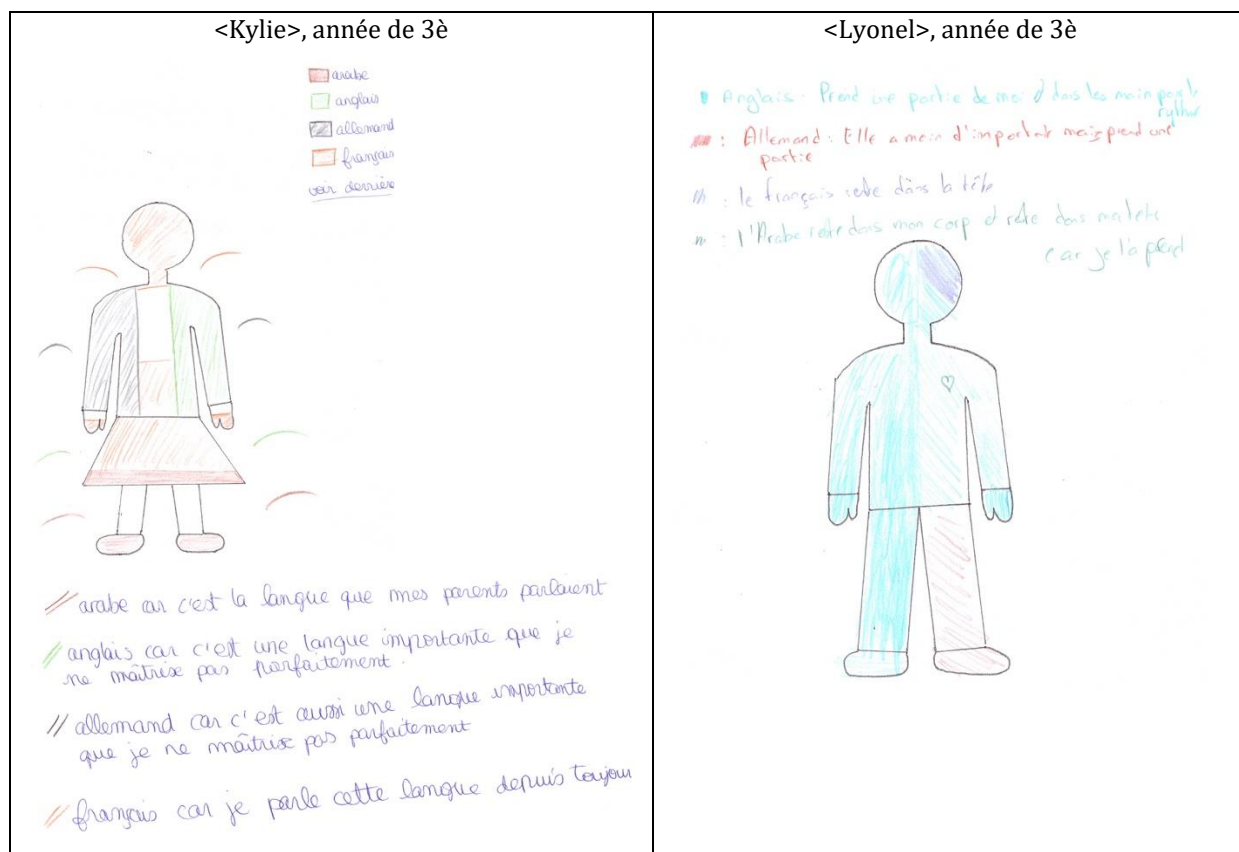 <Kylie>, année de 3è
arabe
anglais
allemand
français
voir derrière
arabe car c'est la langue que mes parents parlaient
anglais car c'est une langue importante que je
ne maîtrise pas parfaitement.
allemand car c'est aussi une langue importante
que je ne maîtrise pas parfaitement
français car je parle cette langue depuis toujour
<Lyonel>, année de 3è
Anglais : Prend une partie de moi et dans les main
: Allemand : Elle a moin d'important mais prend une
partie
: le français reste dans la tête
: l'Arabe reste dans mon corp et reste dans
car je l'a